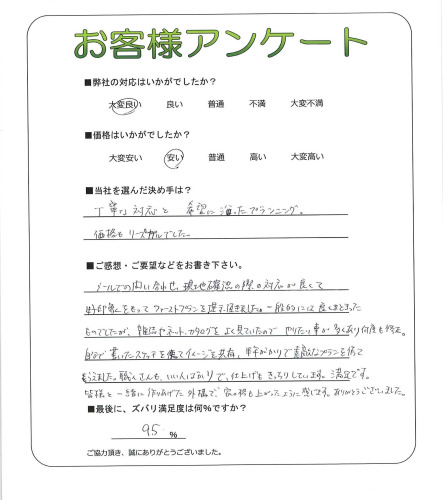 お客様アンケート
■弊社の対応はいかがでしたか?
大変良い 良い 普通 不満 大変不満
■価格はいかがでしたか?
大変安い 安い 普通 高い 大変高い
■当社を選んだ決め手は?
丁寧な対応と 希望に沿ったプランニング。
価格もリーズナブルでした。
■ご感想・ご要望などをお書き下さい。
メールでの問い合わせ、現地確認の際の対応が良くて
好印象をもってファーストプランを提示頂きました。一般的には良くまとまった
ものでしたが、雑誌やネット、カタログをよく見ていたので やりたい事が多くあり何度も修正。
自分で書いたスケッチを使ってイメージを共有、半年がかりで素敵なプランを作って
もらえました。職人さんも、いい人ばかりで、仕上げもきっちりしています。満足です。
皆様と一緒に作りあげた外構で、家の格も上がったように感じます。ありがとうございました。
■最後に、ズバリ満足度は何%ですか?
95 %
ご協力頂き、誠にありがとうございました。